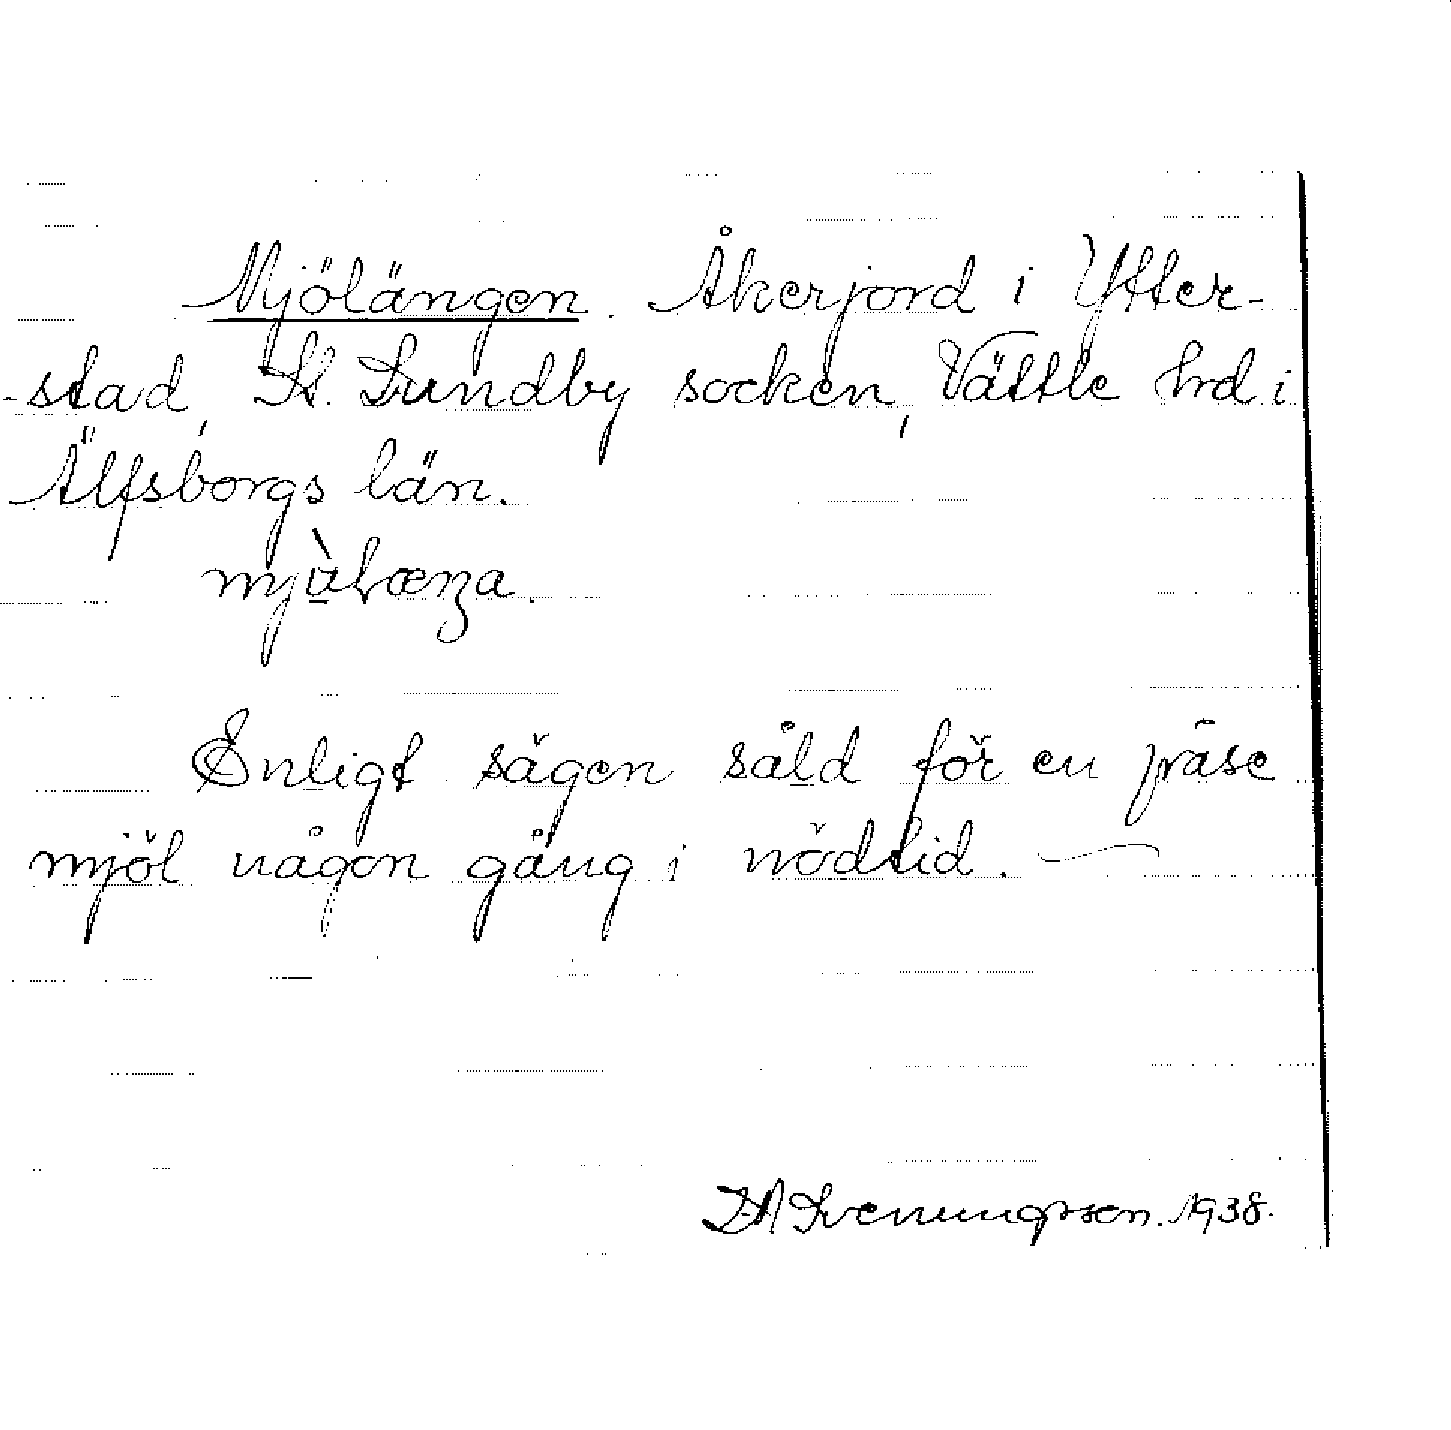 Mjölängen. Åkerjord i Ytter-
-stad, St. Lundby socken, Vättle hrd i
Älfsborgs län.
Enligt sägen såld för en påse
mjöl någon gång i nödtid.
Svenungsson. 1938.